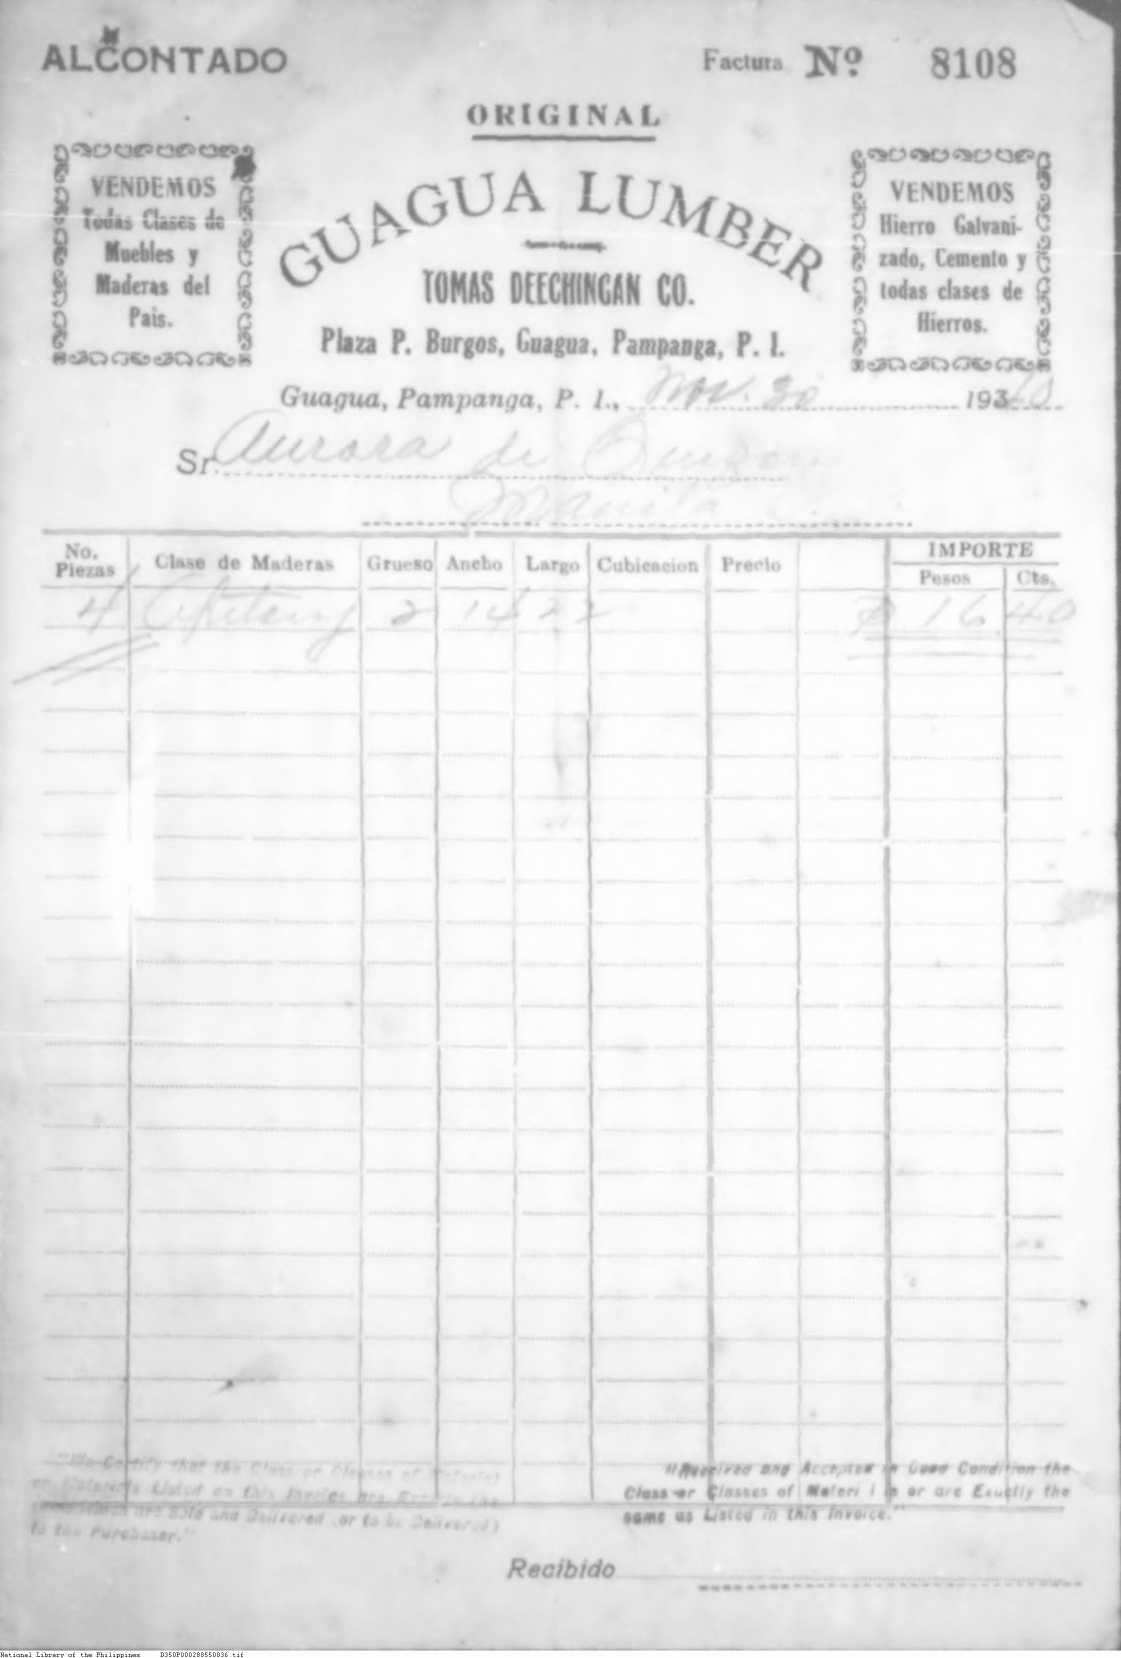 ALCONTADO
Factura Nº 8108
ORIGINAL
VENDEMOS
Todas Clases de
Muebles y
Maderas del
Pais.
GUAGUA LUMBER
TOMAS DEECHINGAN CO.
Plaza P. Burgos, Guagua, Pampanga, P. I.
VENDEMOS
Hierro Galvani-
zado, Cemento y
todas clases de
Hierros.
Guagua, Pampanga, P. I., Nov. 30 1940
Sr. Aurora de
Manila
No. Piezas Clase de Maderas Grueso Ancho Largo Cubicacion Precio IMPORTE Pesos Cts.
4 Apitong 2 14 22 ₱ 16 40
"We Certify that the Class or Classes of Material
or Materials Listed on this Invoice are Exactly the
are Sold and Delivered (or to be Delivered)
to the Purchaser."
"Received and Accepted in Good Condition the
Class or Classes of Materi l s or are Exactly the
same as Listed in this Invoice."
Recibido
National Library of the Philippines D350P000288550836.tif